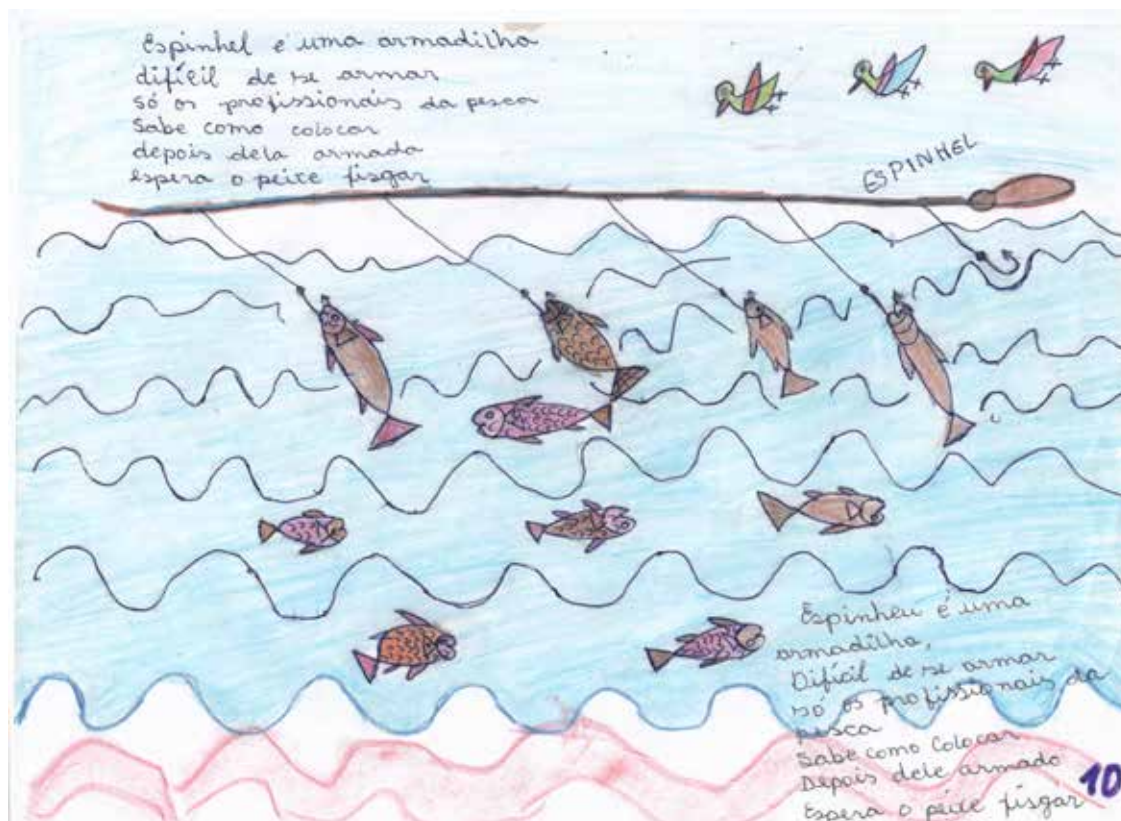 Espinhel é uma armadilha
difícil de se armar
só os profissionais da pesca
Sabe como colocar
depois dela armada
espera o peixe fisgar
ESPINHEL
Espinheu é uma
armadilha,
Difícil de se armar
só os profissionais da
pesca
Sabe como Colocar
Depois dele armado
Espera o peixe fisgar
10